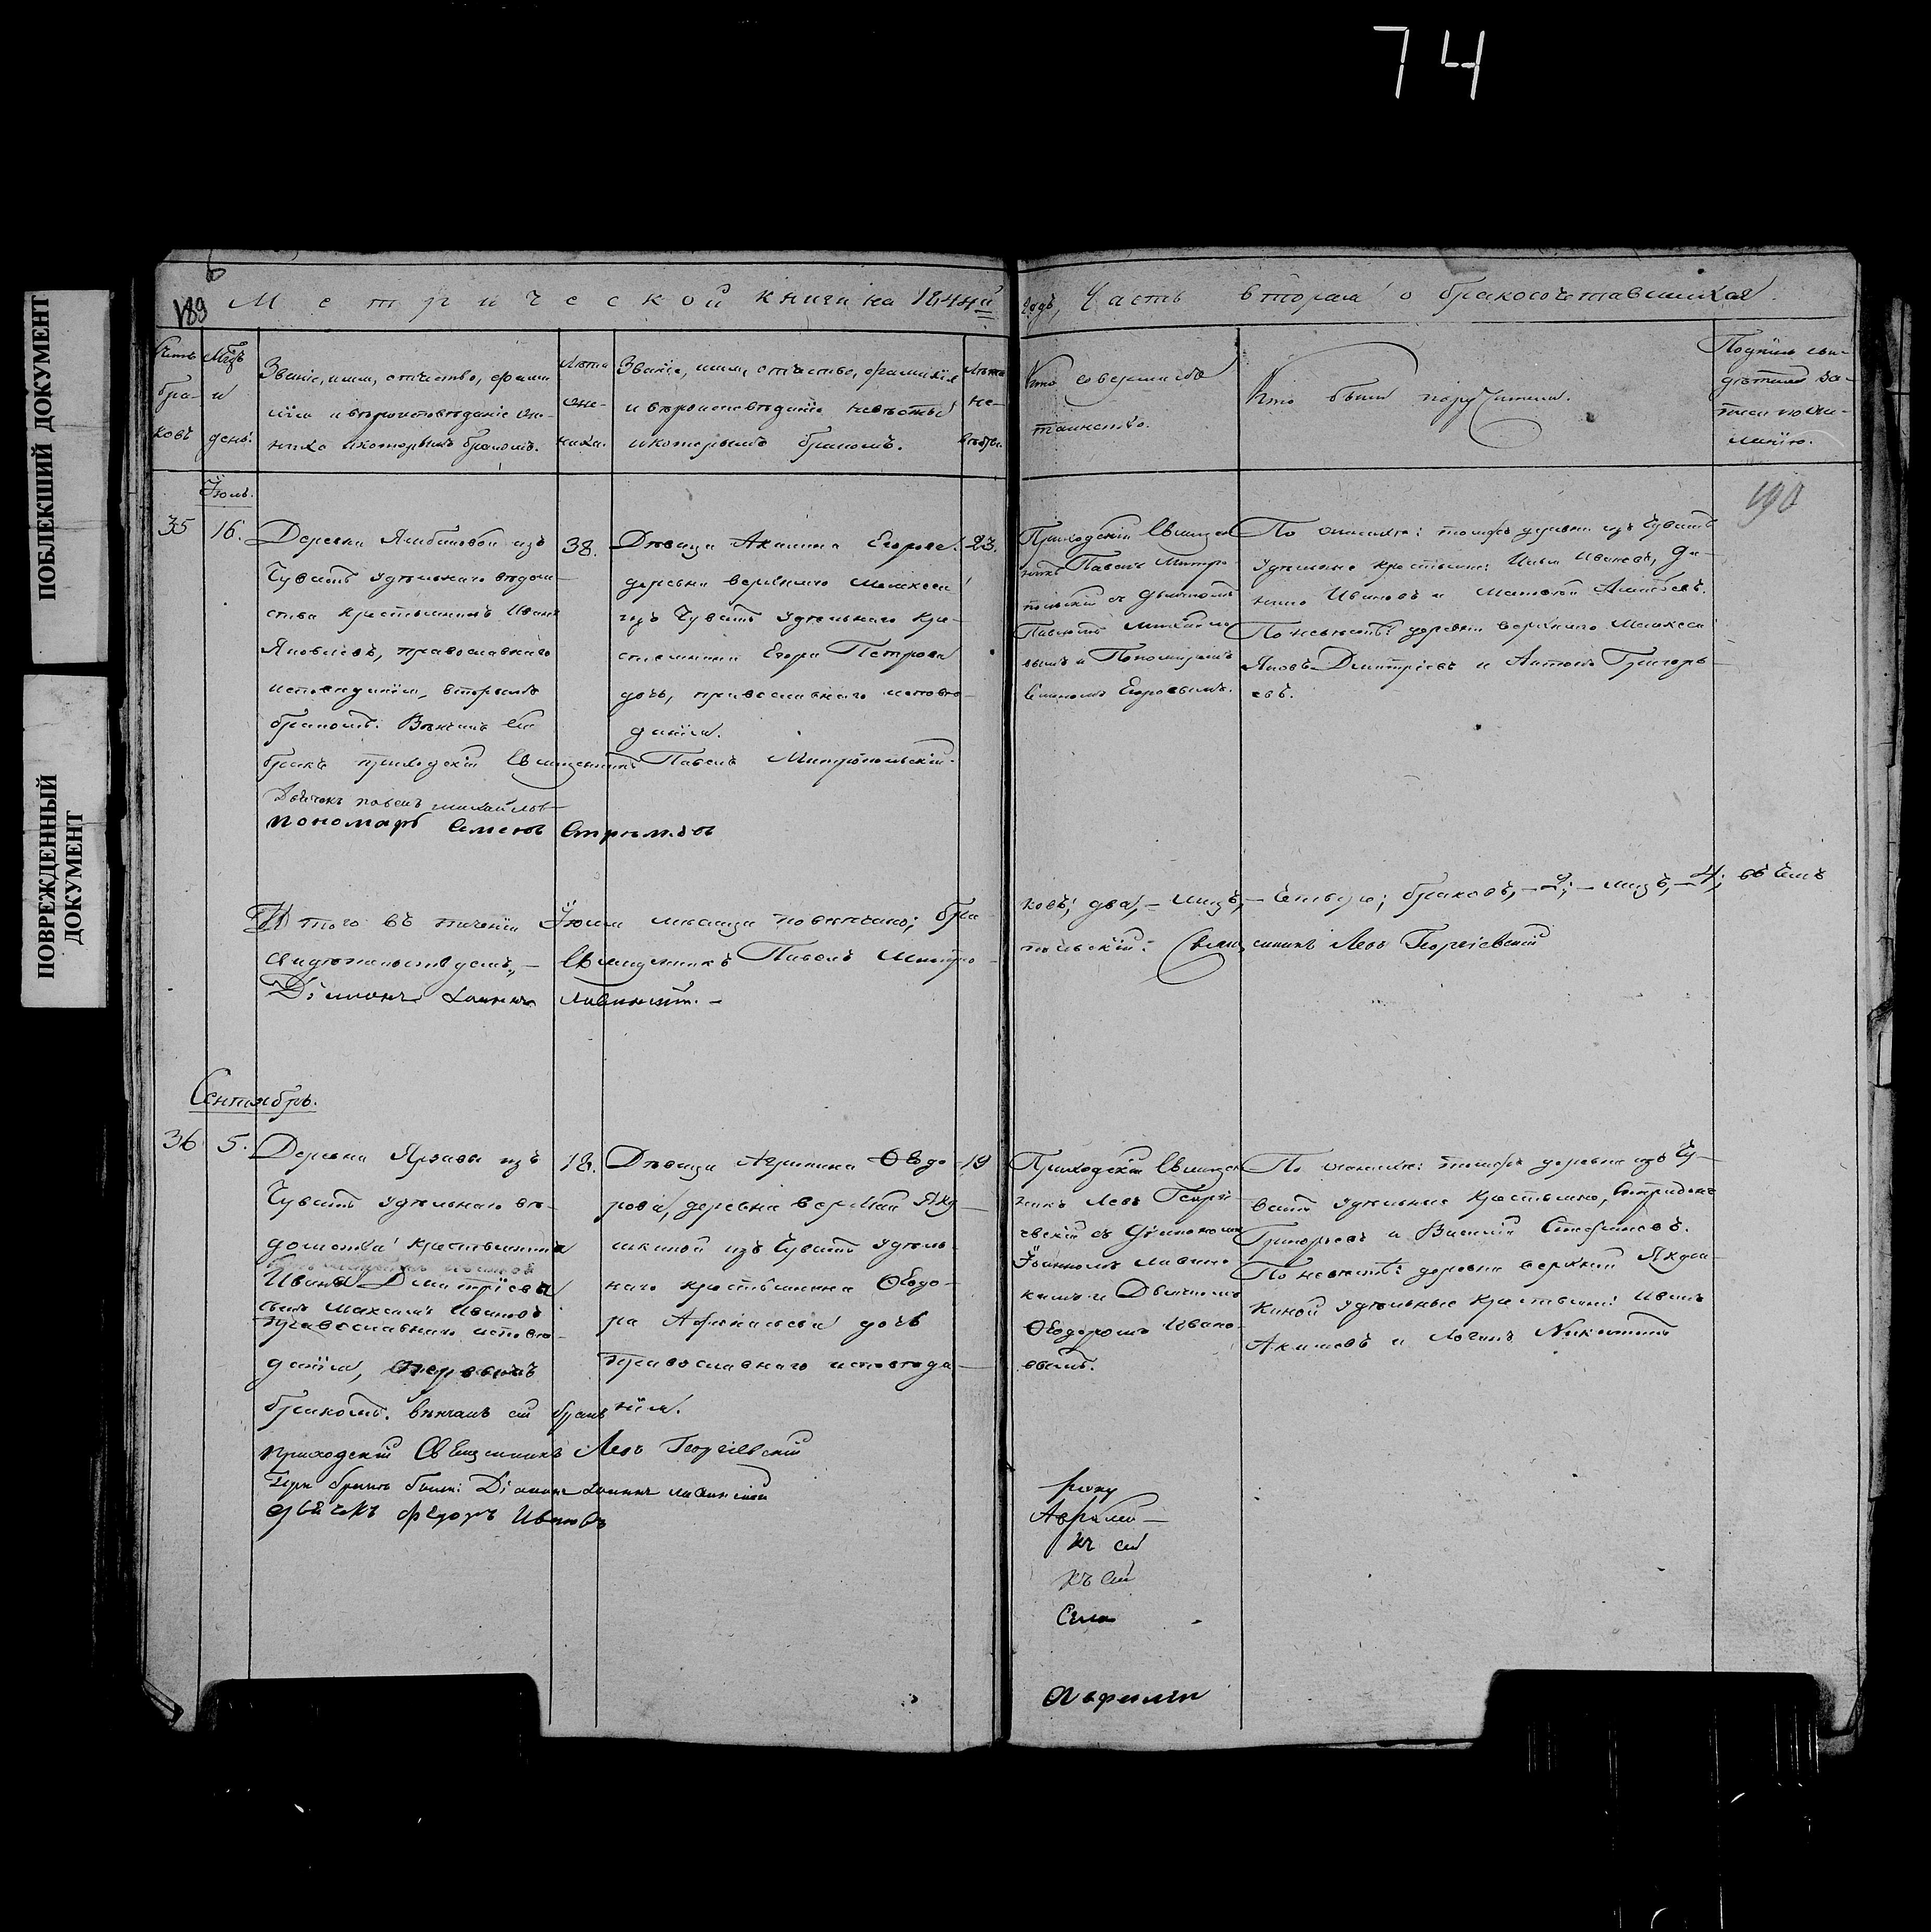 74
ПОБЛЕКШИЙ ДОКУМЕНТ
ПОВРЕЖДЕННЫЙ
ДОКУМЕНТ
6
189
Метрической книги на 1844й
годъ, Часть вторая о бракосочетавшихся.
Счетъ
бра-
ковъ
Мцъ
и
день.
Званіе, имя, отчество, фами
лія и вѣроисповѣданіе же-
ниха и которымъ бракомъ.
Лѣта
же-
ниха.
Званіе, имя, отчество, фамилія
и вѣроисповѣданіе невѣсты
и которымъ бракомъ.
Лѣта
не-
вѣсты.
Кто совершалъ
таинство.
Кто были поручители.
Подпись сви-
дѣтелей за-
писи по же-
ланію.
190
Іюль.
35
16.
Деревни изъ
Чувашъ удѣльнаго вѣдом-
ства крестьянинъ Иванъ
Яковлевъ, православнаго
исповѣданія, вторымъ
бракомъ. Вѣнчалъ сей
бракъ приходскій Священникъ Павелъ Митропольскій.
Дьячекъ павелъ михайловъ
пономарь Семенъ
38.
Дѣвица Акилина Егорова,
деревни верхняго
изъ Чувашъ удѣльнаго кре-
стьянина Егора Петрова
дочь, православнаго исповѣ-
данія.
23.
Приходскій Священ
никъ Павелъ Митро-
польскій съ Дьячкомъ
Павломъ Михайло-
вымъ и Пономаремъ
Семеномъ Егоровымъ.
По женихѣ: тойжъ деревни изъ Чувашъ
удѣльные крестьяне: Илья Ивановъ, Да-
нило Ивановъ и Матвей
По невѣстѣ: деревни верхняго
Яковъ Дмитріевъ и Антонъ Григорь-
евъ.
И того въ теченіи Іюля месяца повѣнчано; бра-
ковъ, два, – лицъ, – четыре; браковъ, – 2; – лицъ, – 4; въ чемъ
свидѣтельствуемъ, – Священникъ Павелъ Митро-
польскій: Священникъ Левъ Георгіевскій
Діаконъ Іоаннъ
Сентябрь.
36
5.
Деревни изъ
Чувашъ удѣльнаго вѣ-
домства крестьянина
Ивана Дмитріева
сынъ Максимъ Ивановъ
православнаго исповѣ-
данія, первымъ
бракомъ. вѣнчалъ сей бракъ
приходскій Священникъ Левъ Георгіевскій
При бракѣ были: Діаконъ Іоаннъ
дьячекъ Федоръ Ивановъ
18.
Дѣвица Агрипина Ѳеодо-
рова, деревни верхней Яку
шкиной изъ Чувашъ удѣль-
наго крестьянина Ѳеодо-
ра Афанасьева дочь
православнаго исповѣда-
нія.
19
Приходскій Священ
никъ Левъ Георгі-
евскій съ Діакономъ
Іоанномъ
и Дьячкомъ
Ѳеодоромъ Ивано-
вымъ.
По женихѣ: тойжъ деревни изъ Чу-
вашъ удѣльные крестьяне, Спиридонъ
Григорьевъ и Василій Стефановъ.
По невѣстѣ: деревни верхней Якуш-
киной удѣльные крестьяне: Иванъ
Акимовъ и Логинъ Никитинъ
руку
къ сей
къ сей
Села